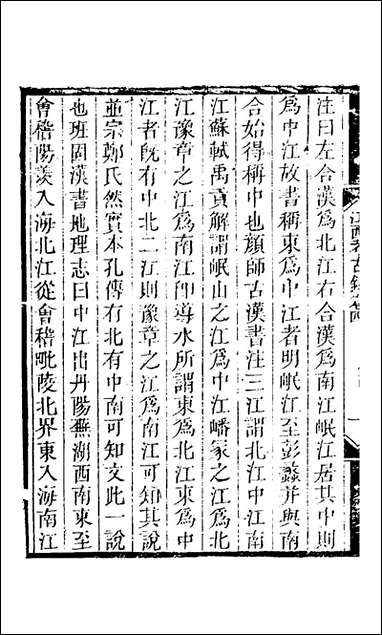 注曰左合漢爲北江右合漢爲南江岷江居其中則
爲中江故書稱東爲中江者明岷江至彭蠡并與南
合始得稱中也顔師古漢書注三江謂北江中江南
江蘇軾禹貢解謂岷山之江爲中江嶓冢之江爲北
江豫章之江爲南江卽導水所謂東爲北江東爲中
江者旣有中北二江則豫章之江爲南江可知其說
並宗鄭氏然實本孔傳有北有中南可知文此一說
也班固漢書地理志曰中江出丹陽蕪湖西南東至
會稽陽羨入海北江從會稽毗陵北界東入海南江
江西考古錄